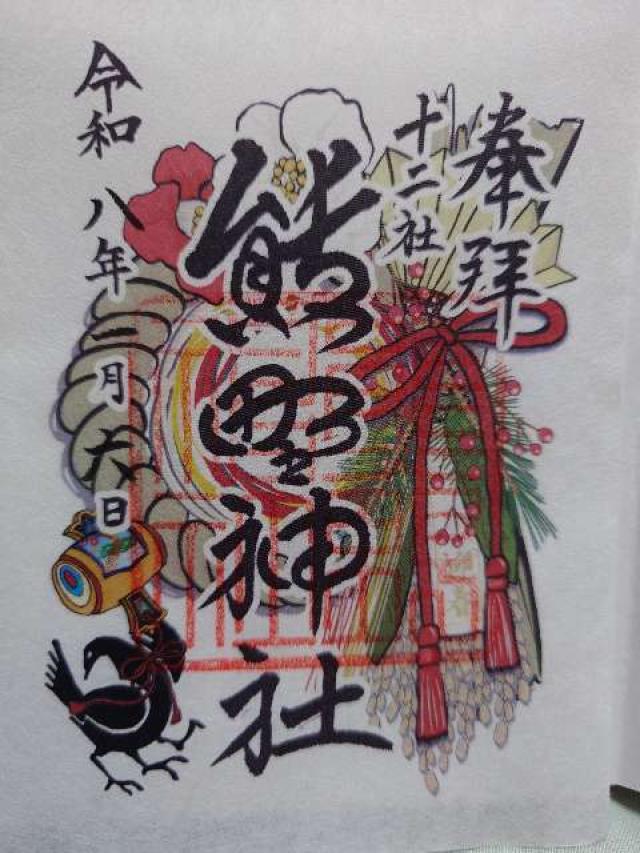 奉拝
十二社
熊野神社
令和八年一月六日